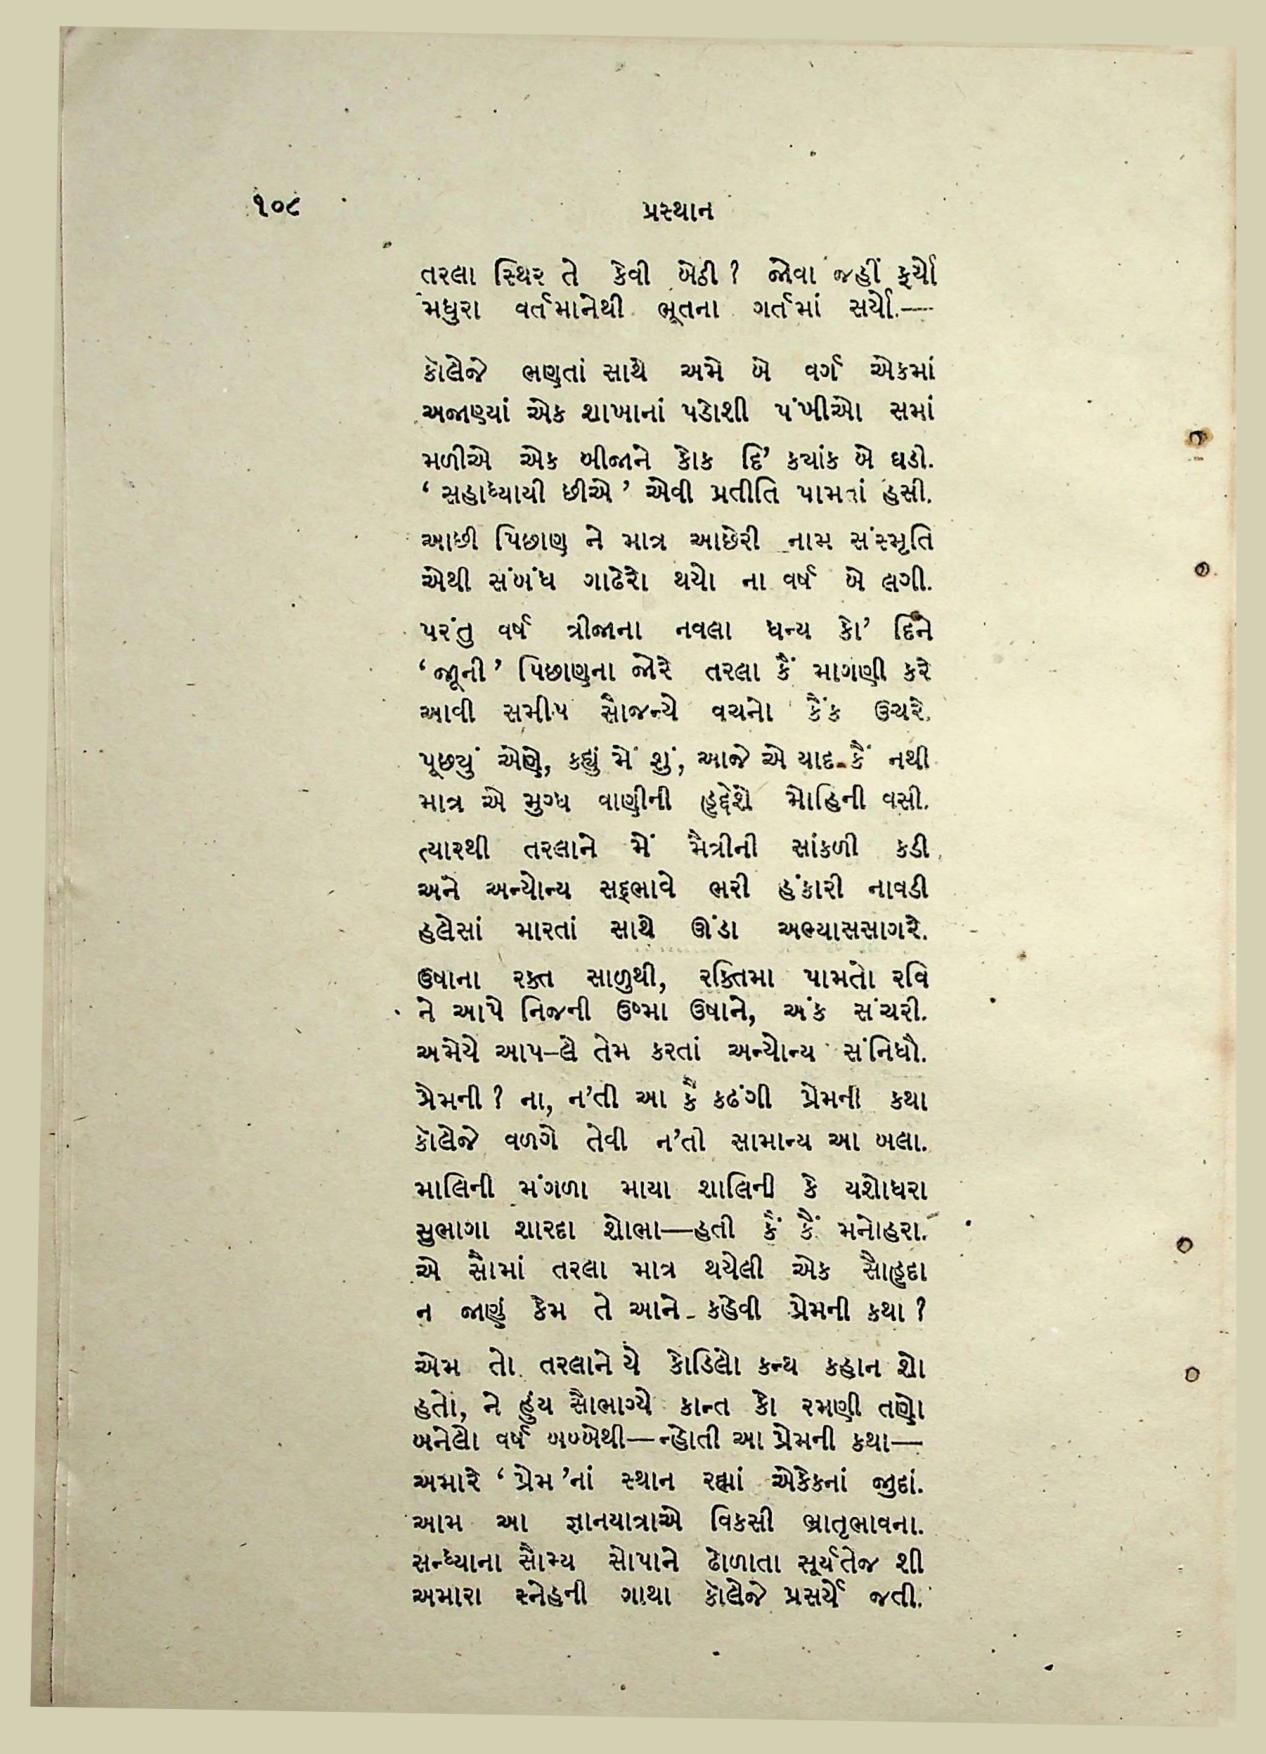 ૧૦૮
પ્રસ્થાન
તરલા સ્થિર તે કેવી બેઠી? જોવા જહીં ફર્યો
મધુરા વર્તમાનેથી ભૂતના ગર્તમાં સર્યો.—
કૉલેજે ભણતાં સાથે અમે બે વર્ગ એકમાં
અજાણ્યાં એક શાખાનાં પડોશી પંખીઓ સમાં
મળીએ એક બીજાને કોક દિ’ ક્યાંક બે ઘડી.
‘ સહાધ્યાયી છીએ ’ એવી પ્રતીતિ પામતાં હસી.
આછી પિછાણ ને માત્ર આછેરી નામ સંસ્મૃતિ
એથી સંબંધ ગાઢેરો થયો ના વર્ષ બે લગી.
પરંતુ વર્ષ ત્રીજાના નવલા ધન્ય કો’ દિને
‘જૂની’ પિછાણના જોરે તરલા કૈં માગણી કરે
આવી સમીપ સૌજન્યે વચનો કૈંક ઉચરે.
પૂછ્યું એણે, કહ્યું મેં શું, આજે એ યાદ કૈં નથી
માત્ર એ મુગ્ધ વાણીની હૃદ્દેશે મોહિની વસી.
ત્યારથી તરલાને મેં મૈત્રીની સાંકળી કડી
અને અન્યોન્ય સદ્ભાવે ભરી હંકારી નાવડી
હલેસાં મારતાં સાથે ઊંડા અભ્યાસસાગરે.
ઉષાના રક્ત સાળુથી, રક્તિમા પામતો રવિ
ને આપે નિજની ઉષ્મા ઉષાને, અંક સંચરી.
અમેયે આપ-લે તેમ કરતાં અન્યોન્ય સંનિધૌ.
પ્રેમની? ના, ન’તી આ કૈં કઢંગી પ્રેમની કથા
કૉલેજે વળગે તેવી ન’તી સામાન્ય આ બલા.
માલિની મંગળા માયા શાલિની કે યશોધરા
સુભાગા શારદા શોભા—હતી કૈં કૈં મનોહરા.
એ સૌમાં તરલા માત્ર થયેલી એક સૌહૃદા
ન જાણું કેમ તે આને કહેવી પ્રેમની કથા?
એમ તો તરલાને યે કોડિલો કન્થ કહાન શો
હતો, ને હુંય સૌભાગ્યે કાન્ત કો રમણી તણો
બનેલો વર્ષ બબ્બેથી—ન્હોતી આ પ્રેમની કથા—
અમારે ‘ પ્રેમ ’નાં સ્થાન રહ્યાં એકેકનાં જુદાં.
આમ આ જ્ઞાનયાત્રાએ વિકસી ભ્રાતૃભાવના.
સન્ધ્યાના સૌમ્ય સોપાને ઢોળાતા સૂર્યતેજ શી
અમારા સ્નેહની ગાથા કૉલેજે પ્રસર્યે જતી.